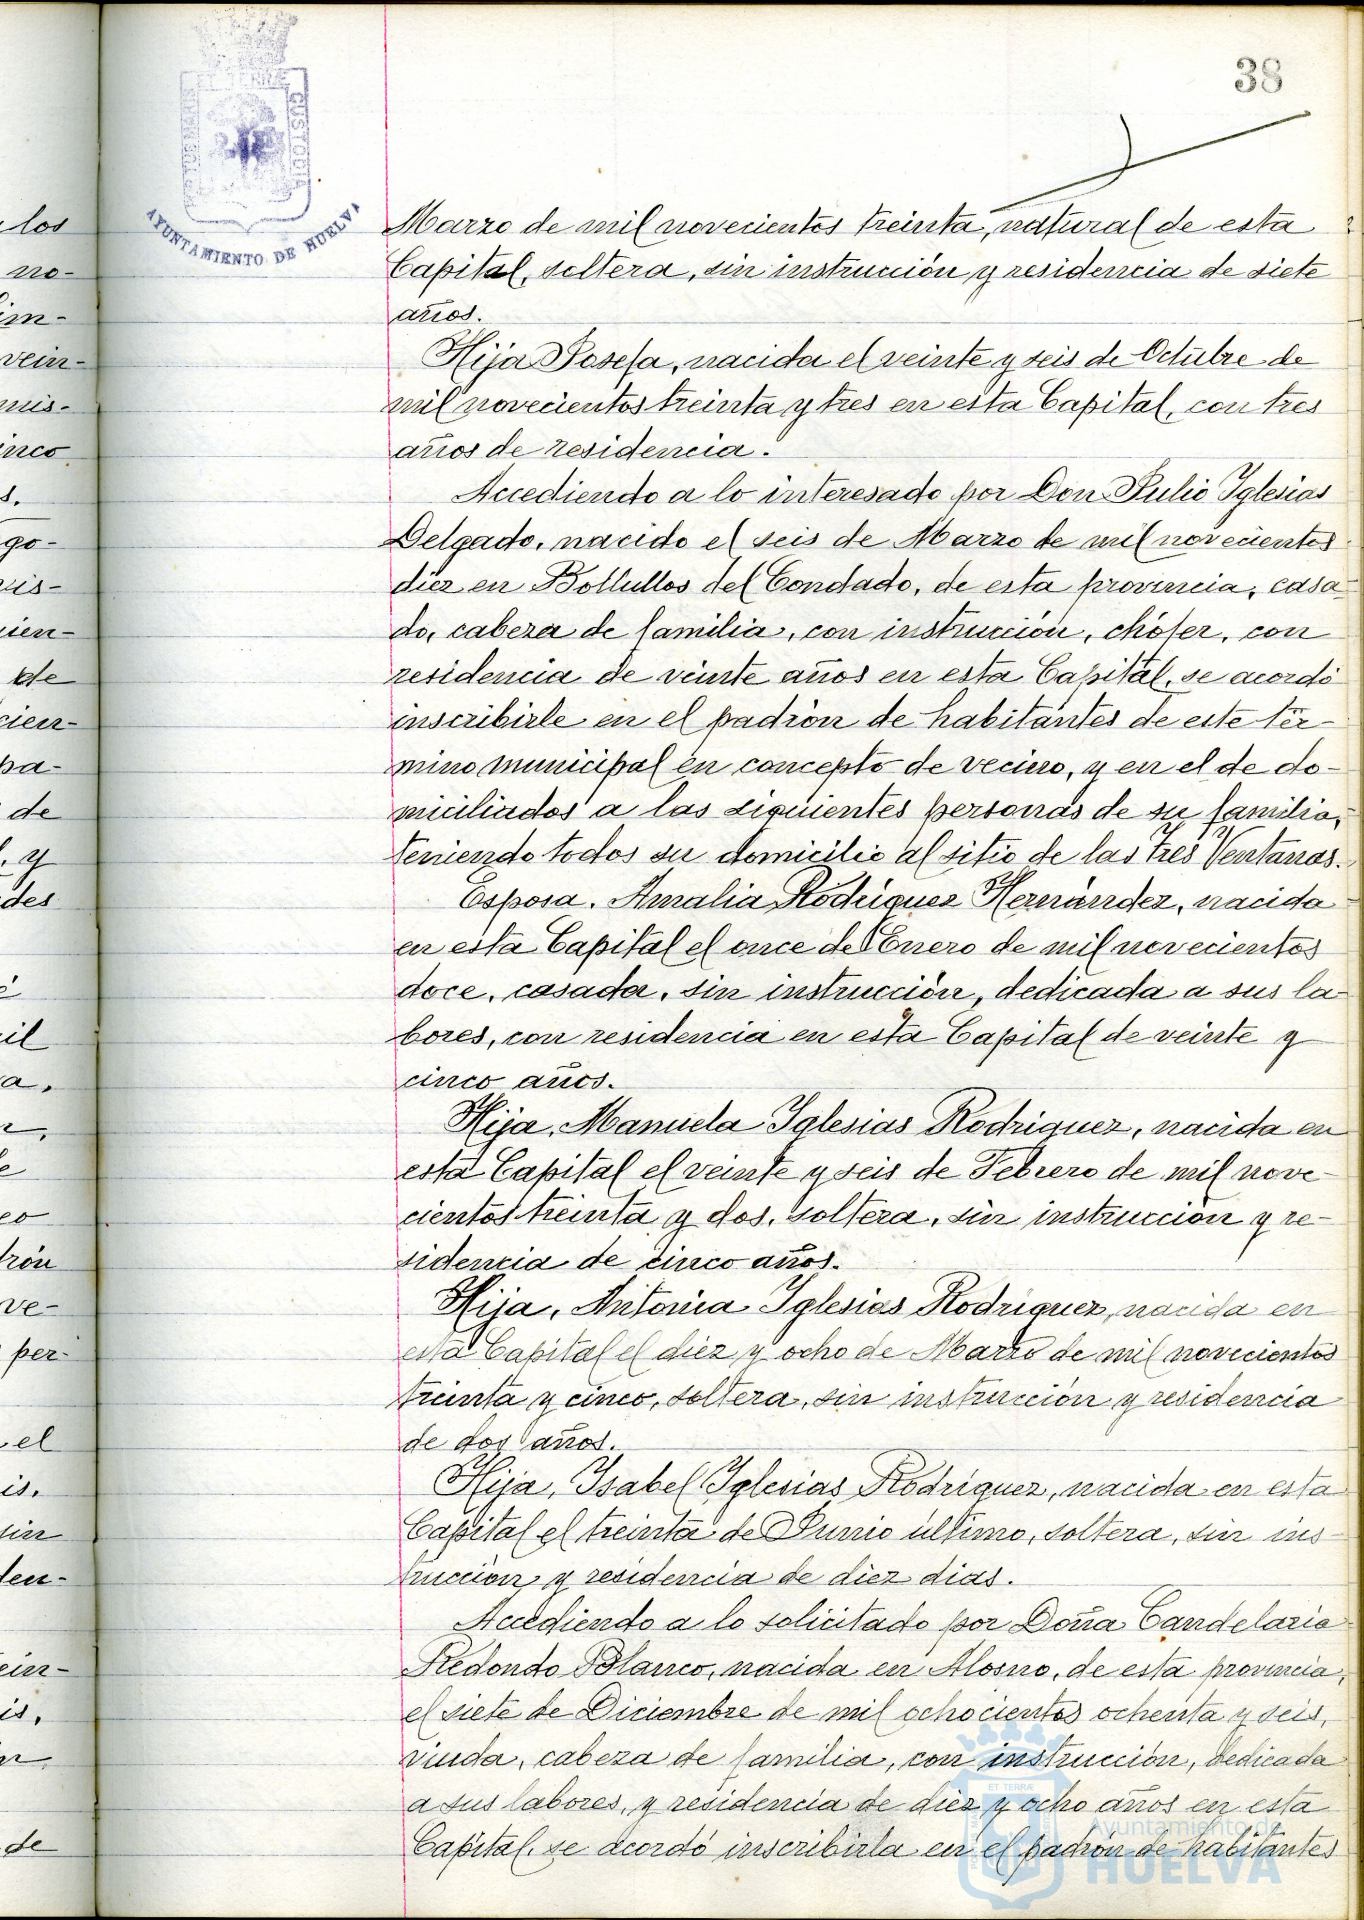 38
PORTUS MARIS ET TERRÆ CUSTODIA
AYUNTAMIENTO DE HUELVA
Marzo de mil novecientos treinta, natural de esta
Capital, soltera, sin instrucción y residencia de siete
años.
Hija Josefa, nacida el veinte y seis de Octubre de
mil novecientos treinta y tres en esta Capital, con tres
años de residencia.
Accediendo a lo interesado por Don Julio Iglesias
Delgado, nacido el seis de Marzo de mil novecientos
diez en Bollullos del Condado, de esta provincia, casa-
do, cabeza de familia, con instrucción, chófer, con
residencia de veinte años en esta Capital, se acordó
inscribirle en el padrón de habitantes de este tér-
mino municipal en concepto de vecino, y en el de do-
miciliados a las siguientes personas de su familia,
teniendo todos su domicilio al sitio de las Tres Ventanas.
Esposa, Amalia Rodríguez Hernández, nacida
en esta Capital el once de Enero de mil novecientos
doce, casada, sin instrucción, dedicada a sus la-
bores, con residencia en esta Capital de veinte y
cinco años.
Hija, Manuela Iglesias Rodríguez, nacida en
esta Capital el veinte y seis de Febrero de mil nove-
cientos treinta y dos, soltera, sin instrucción y re-
sidencia de cinco años.
Hija, Antonia Iglesias Rodríguez, nacida en
esta Capital el diez y ocho de Marzo de mil novecientos
treinta y cinco, soltera, sin instrucción y residencia
de dos años.
Hija, Isabel Iglesias Rodríguez, nacida en esta
Capital el treinta de Junio último, soltera, sin ins-
trucción y residencia de diez dias.
Accediendo a lo solicitado por Doña Candelaria
Redondo Blanco, nacida en Alosno, de esta provincia,
el siete de Diciembre de mil ochocientos ochenta y seis,
viuda, cabeza de familia, con instrucción, dedicada
a sus labores, y residencia de diez y ocho años en esta
Capital, se acordó inscribirla en el padrón de habitantes
Ayuntamiento de
HUELVA